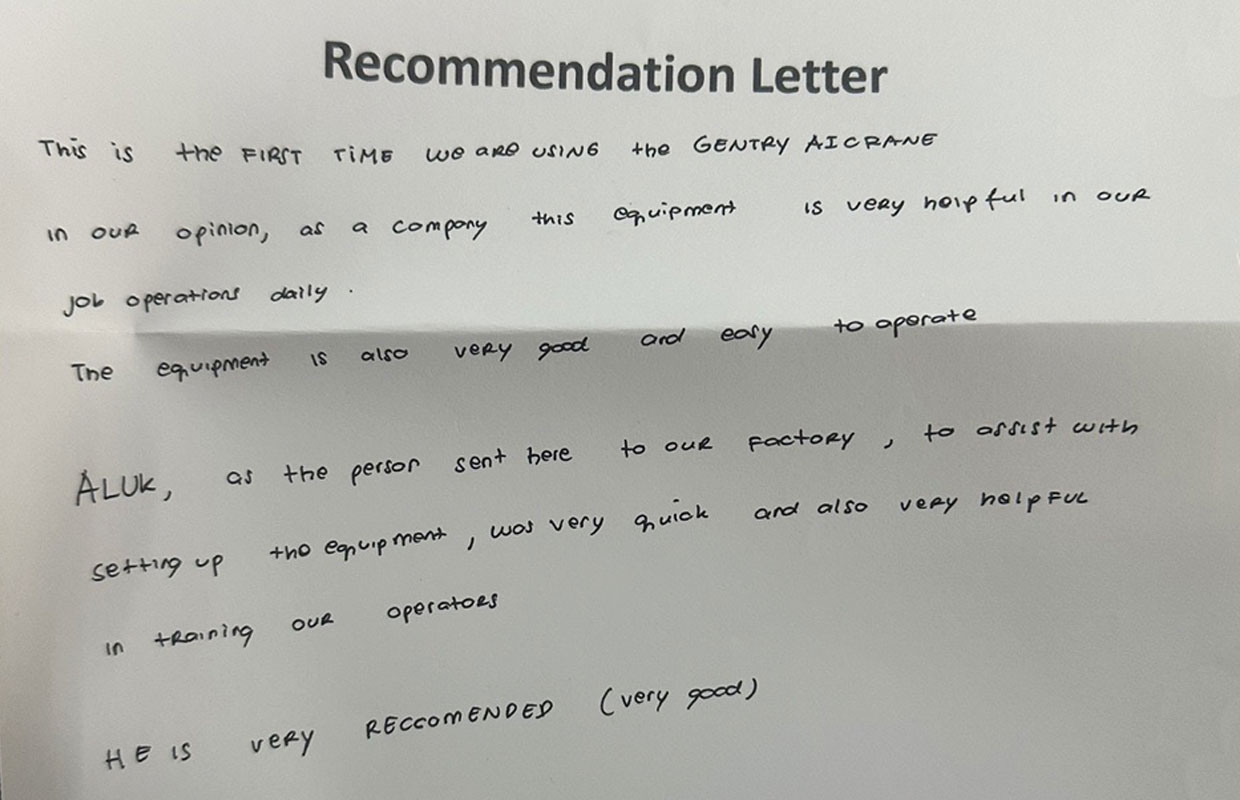 Recommendation Letter
This is the FIRST TIME we are USING the GENTRY AICRANE
in our opinion, as a company this equipment is very helpful in our
job operations daily.
The equipment is also very good and easy to operate
ALUK, as the person sent here to our factory, to assist with
setting up the equipment, was very quick and also very helpful
in training our operators
HE IS very RECCOMENDED (very good)